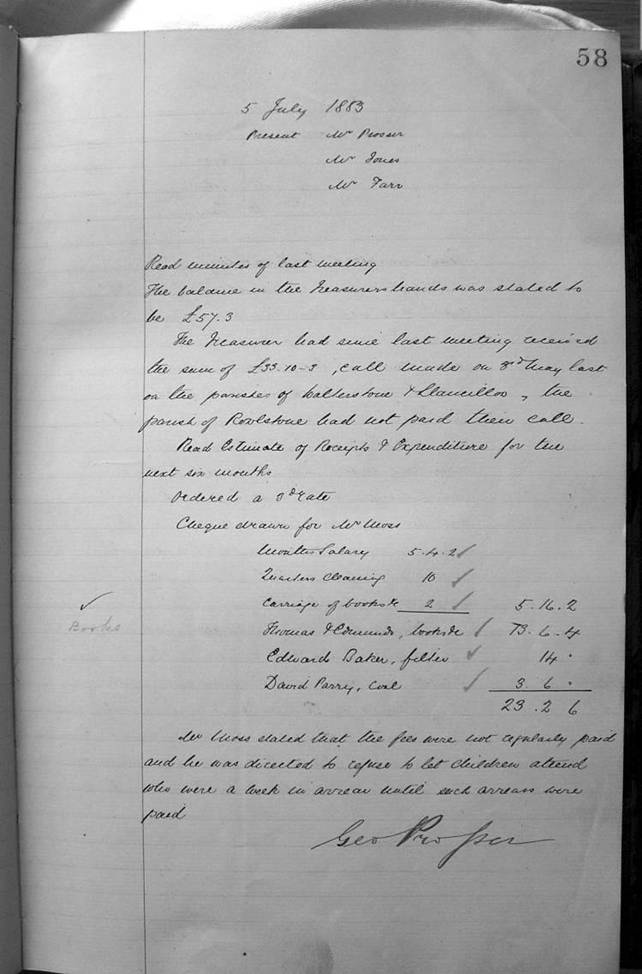 58
5 July 1883
Present Mr Prosser
Mr Jones
Mr Farr
Read minutes of last meeting
The balance in the Treasurers hands was stated to
be £57.3
The Treasurer had since last meeting received
the sum of £33-10-3, call made on 3rd May last
on the parishes of Walterstone & Llancillo, the
parish of Rowlstone had not paid their call.
Read Estimate of Receipts & Expenditure for the
next six months
Ordered a 3d rate
Cheque drawn for Mr Moss
Months Salary 5.4.2 ✓
Quarters Cleaning 10 ✓
Carriage of books &c 2 ✓ 5.16.2
✓
Books
Thomas & Edmunds, books &c ✓ 13.6.4
Edward Baker, filter ✓ 14 .
David Parry, Coal ✓ 3.6 .
23.2 6
Mr Moss stated that the fees were not regularly paid
and he was directed to refuse to let children attend
who were a week in arrear until such arrears were
paid
Geo Prosser